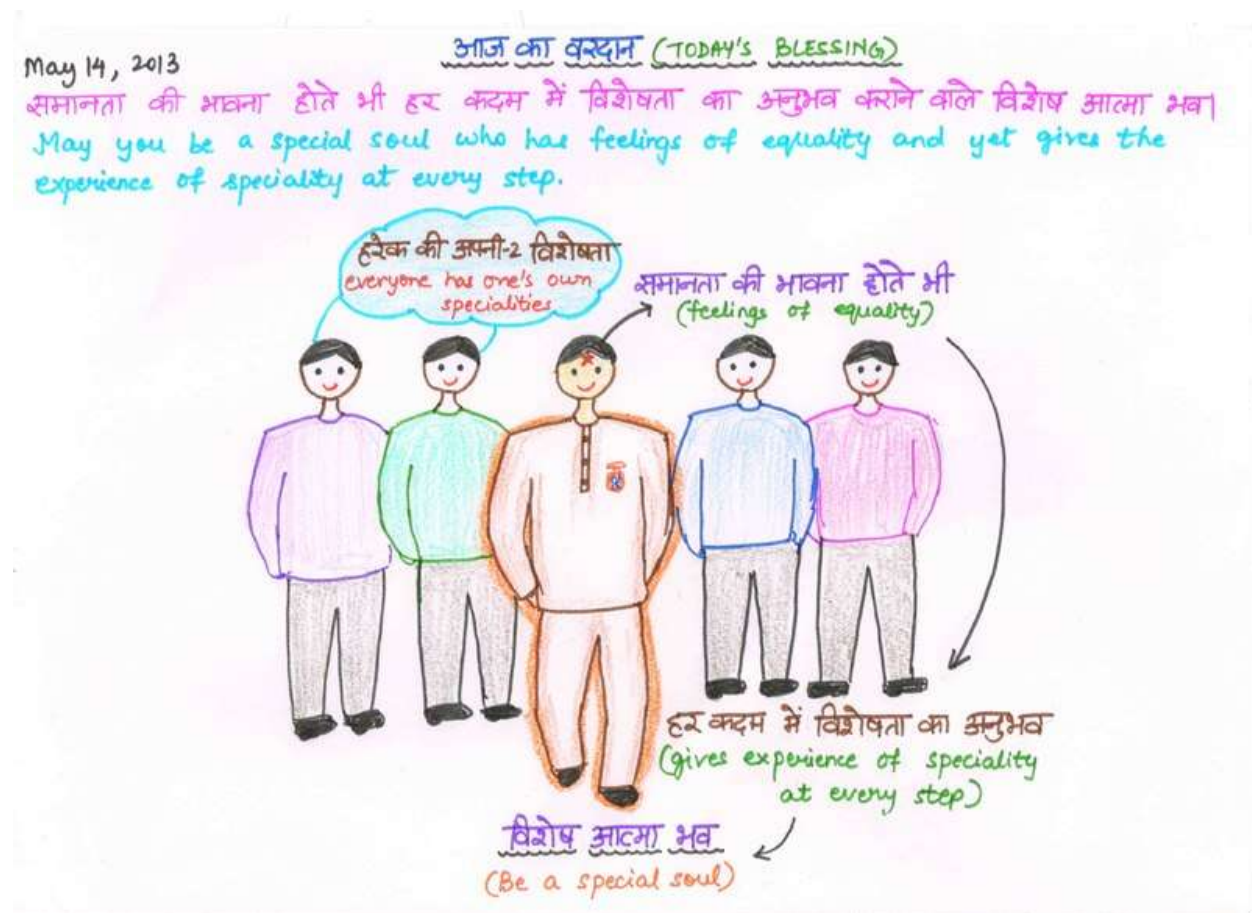 May 14, 2013
आज का वरदान (TODAY'S BLESSING)
समानता की भावना होते भी हर कदम में विशेषता का अनुभव कराने वाले विशेष आत्मा भव।
May you be a special soul who has feelings of equality and yet gives the
experience of speciality at every step.
हरेक की अपनी-2 विशेषता
everyone has one's own
specialities
समानता की भावना होते भी
(feelings of equality)
हर कदम में विशेषता का अनुभव
(gives experience of speciality
at every step)
विशेष आत्मा भव
(Be a special soul)